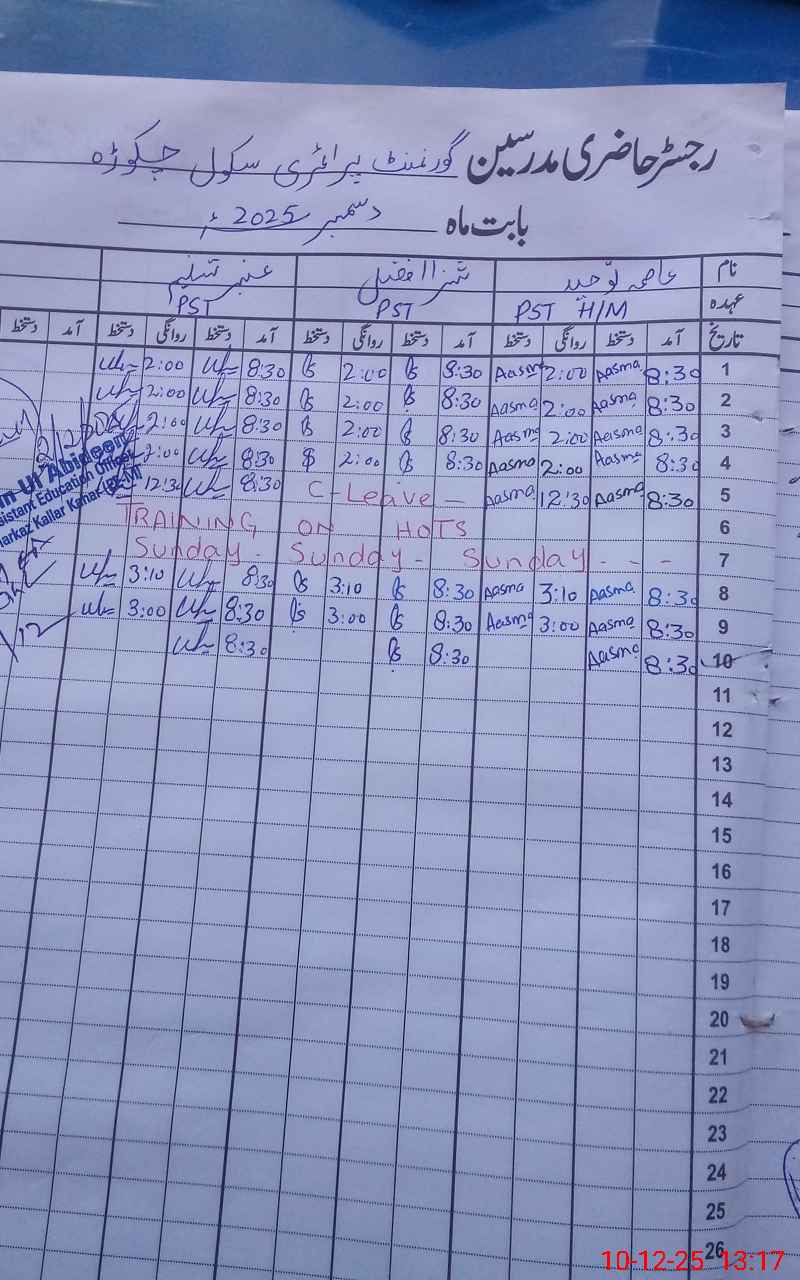 رجسٹر حاضری مدرسین گورنمنٹ پرائمری سکول چکوڑہ
بابت ماہ دسمبر 2025ء
نام عاصمہ توحید شنزا افضل عنبر تسلیم
عہدہ PST H/M PST PST
تاریخ آمد دستخط روانگی دستخط آمد دستخط روانگی دستخط آمد دستخط روانگی دستخط آمد دستخط
1 8:30 Aasma 2:00 Aasma 8:30 2:00 8:30 2:00
2 8:30 Aasma 2:00 Aasma 8:30 2:00 8:30 2:00
3 8:30 Aasma 2:00 Aasma 8:30 2:00 8:30 2:00
4 8:30 Aasma 2:00 Aasma 8:30 2:00 8:30 2:00
5 8:30 Aasma 12:30 Aasma C-Leave - 8:30 12:30
6 TRAINING ON HOTS
7 Sunday - Sunday - Sunday - - -
8 8:30 Aasma 3:10 Aasma 8:30 3:10 8:30 3:10
9 8:30 Aasma 3:00 Aasma 8:30 3:00 8:30 3:00
10 8:30 Aasma 8:30 8:30
11
12
13
14
15
16
17
18
19
20
21
22
23
24
25
26
Ul Abideen
Assistant Education Officer
Markaz Kallar Kahar
10-12-25 13:17